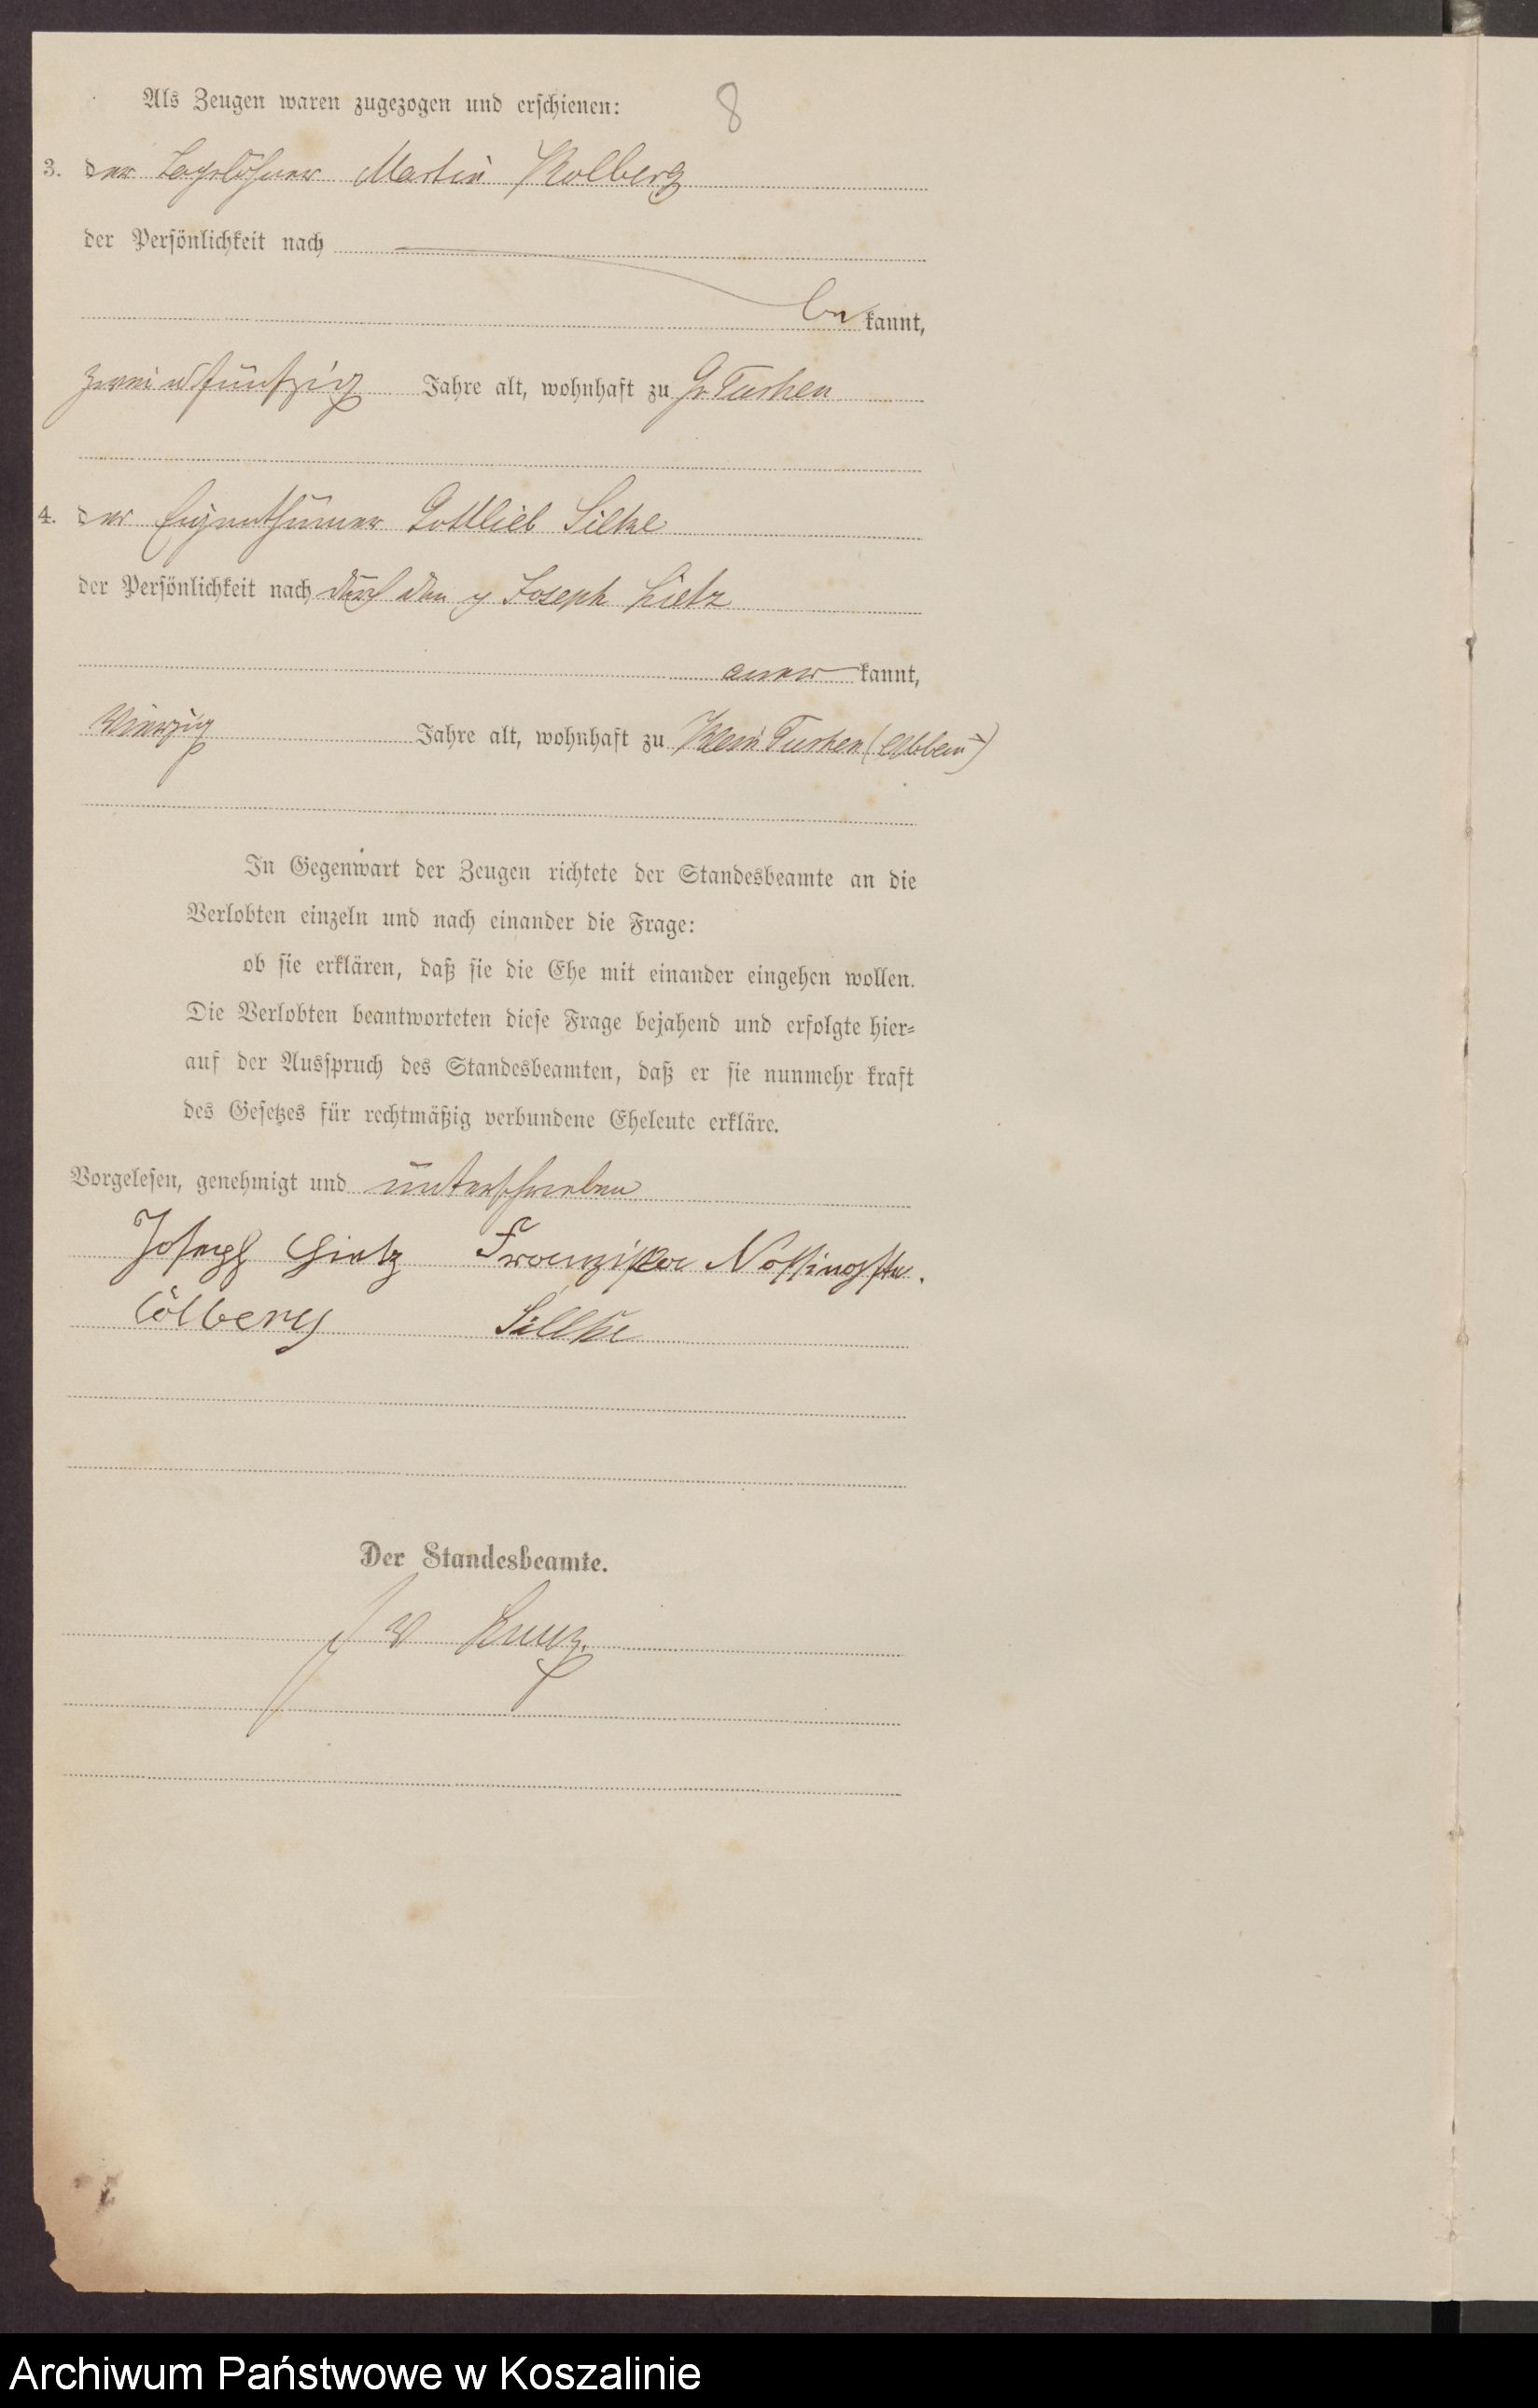 Als Zeugen waren zugezogen und erschienen:
8
3. der Tagelöhner Martin Kolberg
der Persönlichkeit nach
be kannt,
zwei u fünfzig Jahre alt, wohnhaft zu Gr Tuchen
4. der Eigenthümer Gottlieb Silke
der Persönlichkeit nach durch den p Joseph Lietz
aner kannt,
vierzig Jahre alt, wohnhaft zu Klein Tuchen (Abbau)
In Gegenwart der Zeugen richtete der Standesbeamte an die
Verlobten einzeln und nach einander die Frage:
ob sie erklären, daß sie die Ehe mit einander eingehen wollen.
Die Verlobten beantworteten diese Frage bejahend und erfolgte hier=
auf der Ausspruch des Standesbeamten, daß er sie nunmehr kraft
des Gesetzes für rechtmäßig verbundene Eheleute erkläre.
Vorgelesen, genehmigt und unterschrieben
Joseph Franziska
Cölberg Sillke
Der Standesbeamte.
Archiwum Państwowe w Koszalinie